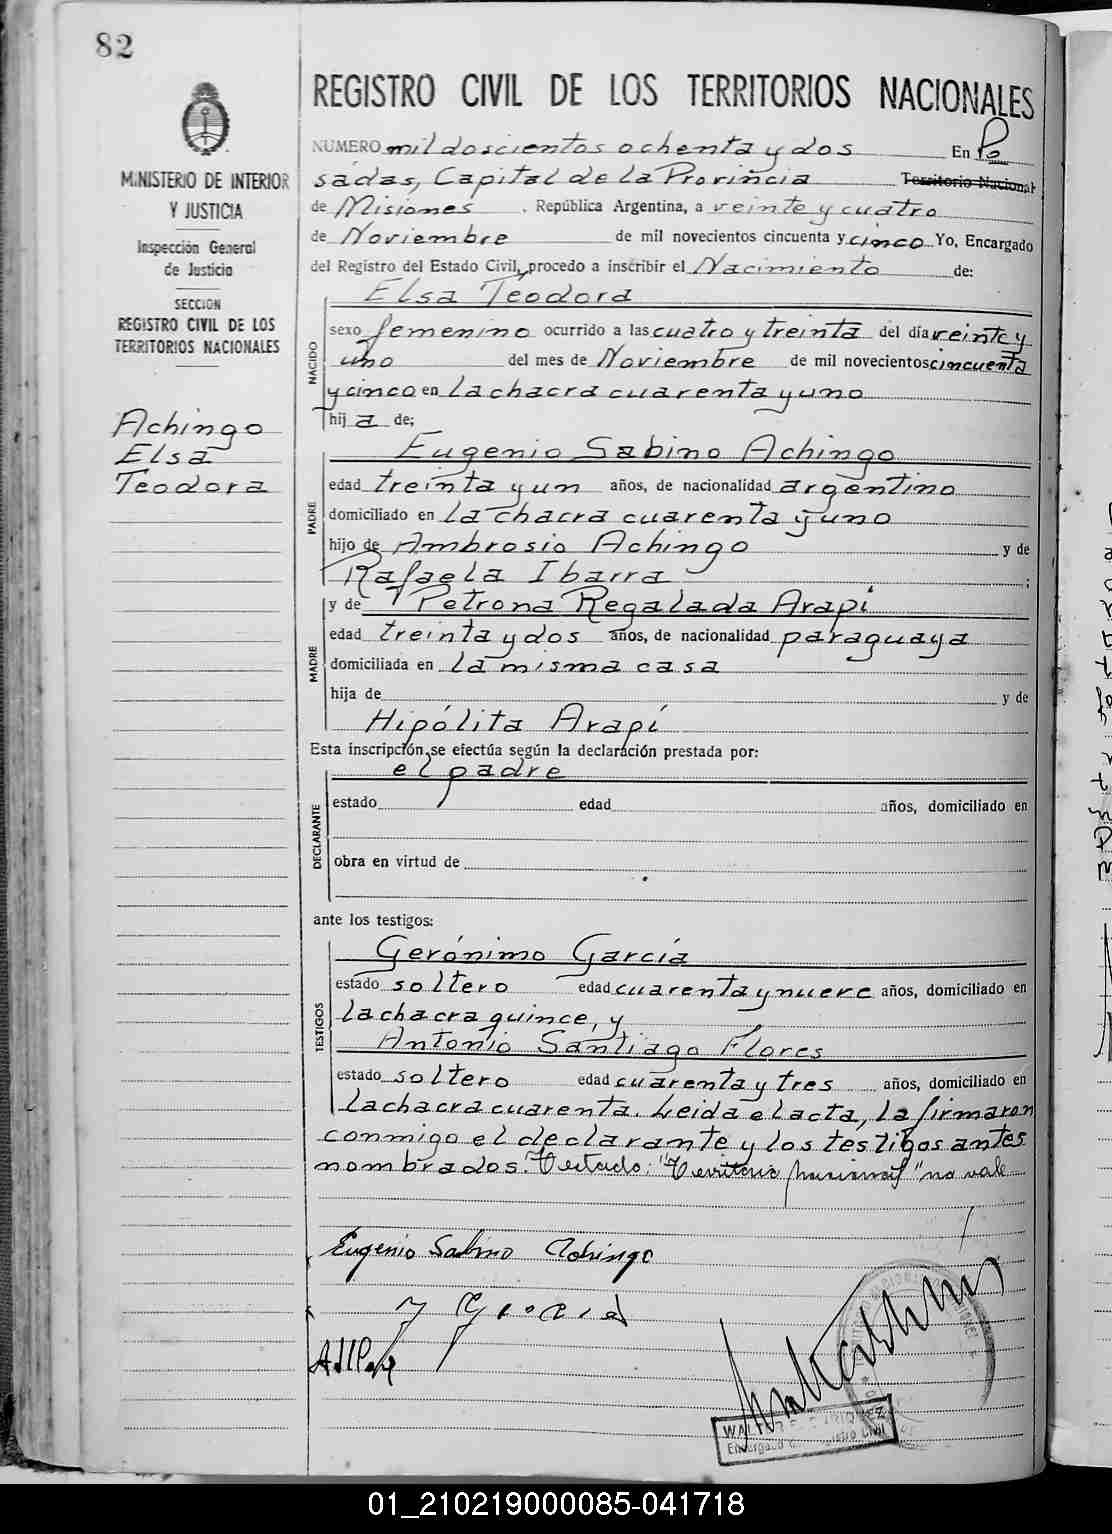 82
MINISTERIO DE INTERIOR
Y JUSTICIA
Inspección General
de Justicia
SECCION
REGISTRO CIVIL DE LOS
TERRITORIOS NACIONALES
Achingo
Elsa
Teodora
REGISTRO CIVIL DE LOS TERRITORIOS NACIONALES
NUMERO mil doscientos ochenta y dos En Po
sadas, Capital de la Provincia Territorio Nacional
de Misiones, República Argentina, a veinte y cuatro
de Noviembre de mil novecientos cincuenta y cinco Yo, Encargado
del Registro del Estado Civil, procedo a inscribir el Nacimiento de:
Elsa Teodora
NACIDO
sexo femenino ocurrido a las cuatro y treinta del día veinte y
uno del mes de Noviembre de mil novecientos cincuenta
y cinco en la chacra cuarenta y uno
hij a de;
Eugenio Sabino Achingo
PADRE
edad treinta y un años, de nacionalidad argentino
domiciliado en la chacra cuarenta y uno
hijo de Ambrosio Achingo y de
Rafaela Ibarra ;
y de Petrona Regalada Arapí
MADRE
edad treinta y dos años, de nacionalidad paraguaya
domiciliada en la misma casa
hija de y de
Hipólita Arapí
Esta inscripción se efectúa según la declaración prestada por:
el padre
DECLARANTE
estado edad años, domiciliado en
obra en virtud de
ante los testigos:
Gerónimo García
TESTIGOS
estado soltero edad cuarenta y nueve años, domiciliado en
la chacra quince, y
Antonio Santiago Flores
estado soltero edad cuarenta y tres años, domiciliado en
la chacra cuarenta. Leida el acta, la firmaron
conmigo el declarante y los testigos antes
nombrados. Testado: "Territorio Nacional" no vale
Eugenio Sabino Achingo
Encargado Registro Civil
01_210219000085-041718